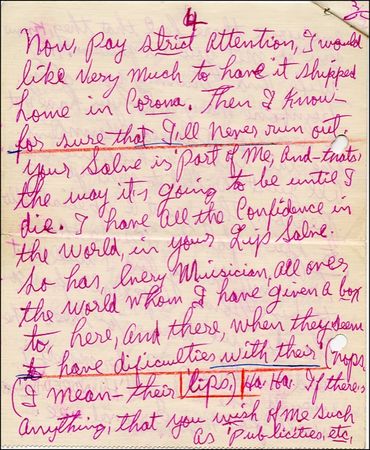 4
3/
Now, pay strict Attention, I would
like very much to have it shipped
home in Corona. Then I know–
for sure that I'll never run out
your Salve is part of me, And–thats
the way it's going to be until I
die. I have All the Confidence in
the world, in your Lip Salve.
So has, Every Musician, All over
the world whom I have given a box
to, here, And there, when they seem
to have dificulties with their Chops
(I mean–their lips,) Ha. Ha. If there's
Anything, that you wish of me such
As 'Publicities, etc.